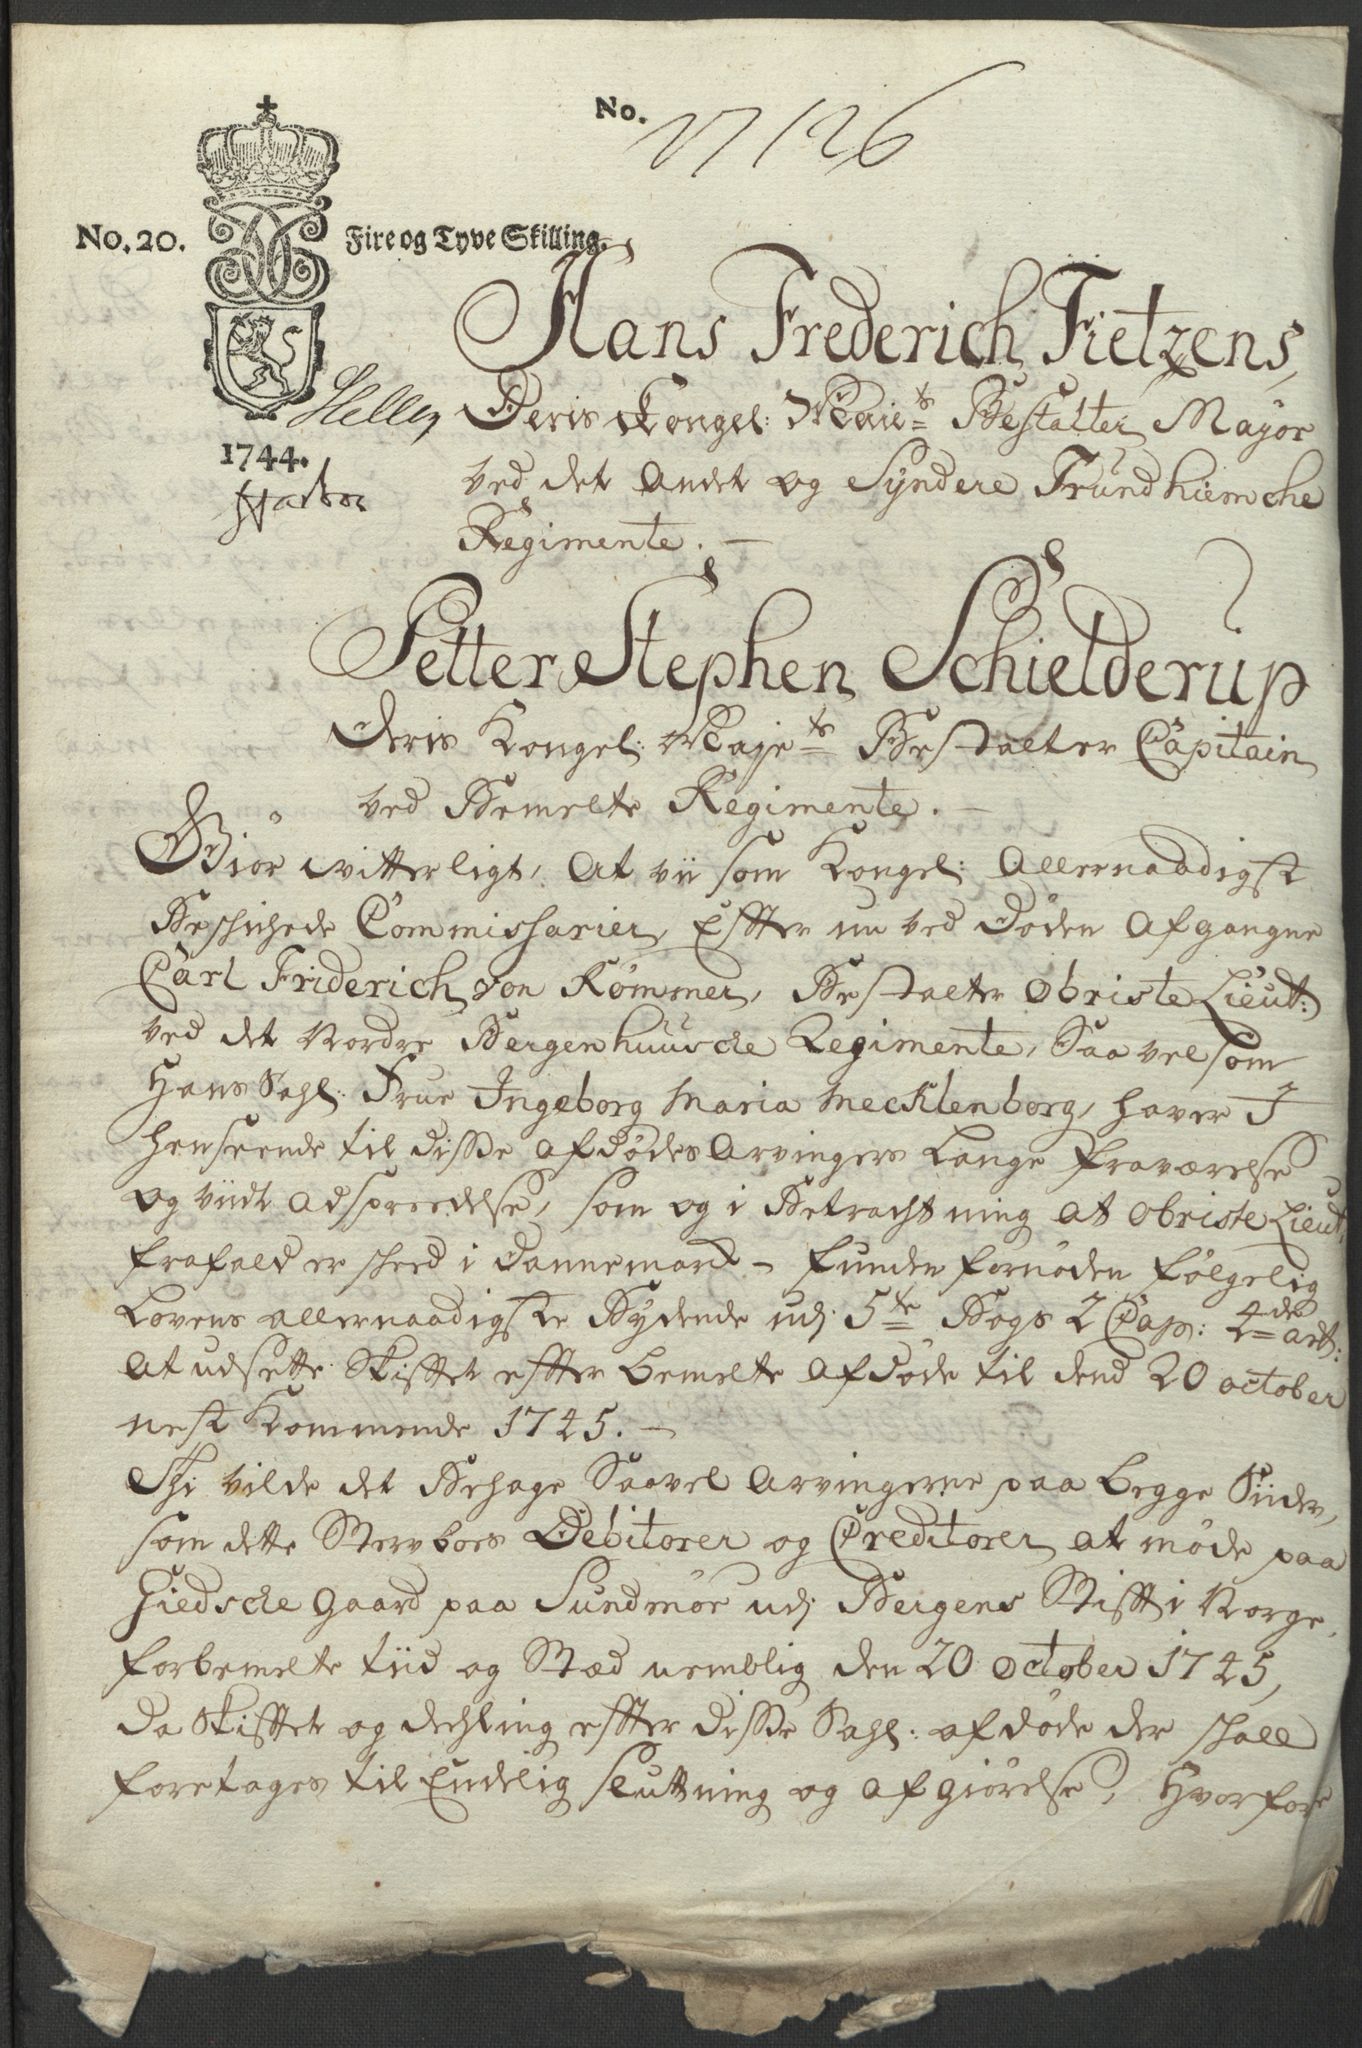 No. 17126
No. 20. Fire og Tyve Skilling.
Hans Frederich Fietzens,
Heller
1744.
Deris Kongel: Maje^ts Bestalter Major
ved det Andet og Syndere Trundhiemche
Regimente. —
Petter Stephen Schielderup
Deris Kongel: Maje^ts Bestalter Capitain
ved Bemelte Regimente. —
Giör vitterligt, At vii som Kongel: Allernaadigst
Beschichede Commissarier, Effter nu ved Döden afgangne
Carl Friderich von Römmer, Bestalter Obriste Lieut:
ved det Nordre Bergenhuusche Regimente, Saa vel som
Hans Sahl: Frue Ingeborg Maria Mecklenborg, haver I
henseende til disse afdödes Arvingers Lange fraværelse
og viidt adspreedelse, som og i Betrachtning at Obriste Lieut:
frafald er scheed i Dannemark — funden fornöden fölgelig
Lovens allernaadigste Bydende udj 5^te Bogs 2 Cap: 4^de art:
At udsette Skifftet effter bemelte afdöde til dend 20 october
nest Kommende 1745. —
Thi vilde det Behage Saavel Arvingerne paa begge Siider,
som dette Sterboes Debitorer og Creditorer at möde paa
Giedsche Gaard paa Sundmör udj Bergens Stifft i Norge,
forbemelte tiid og Stæd nemblig den 20 october 1745,
da Skifftet og dehling effter disse Sahl: afdöde der schall
foretages til Endelig Sluttning og afgiörelse, Hvorfore